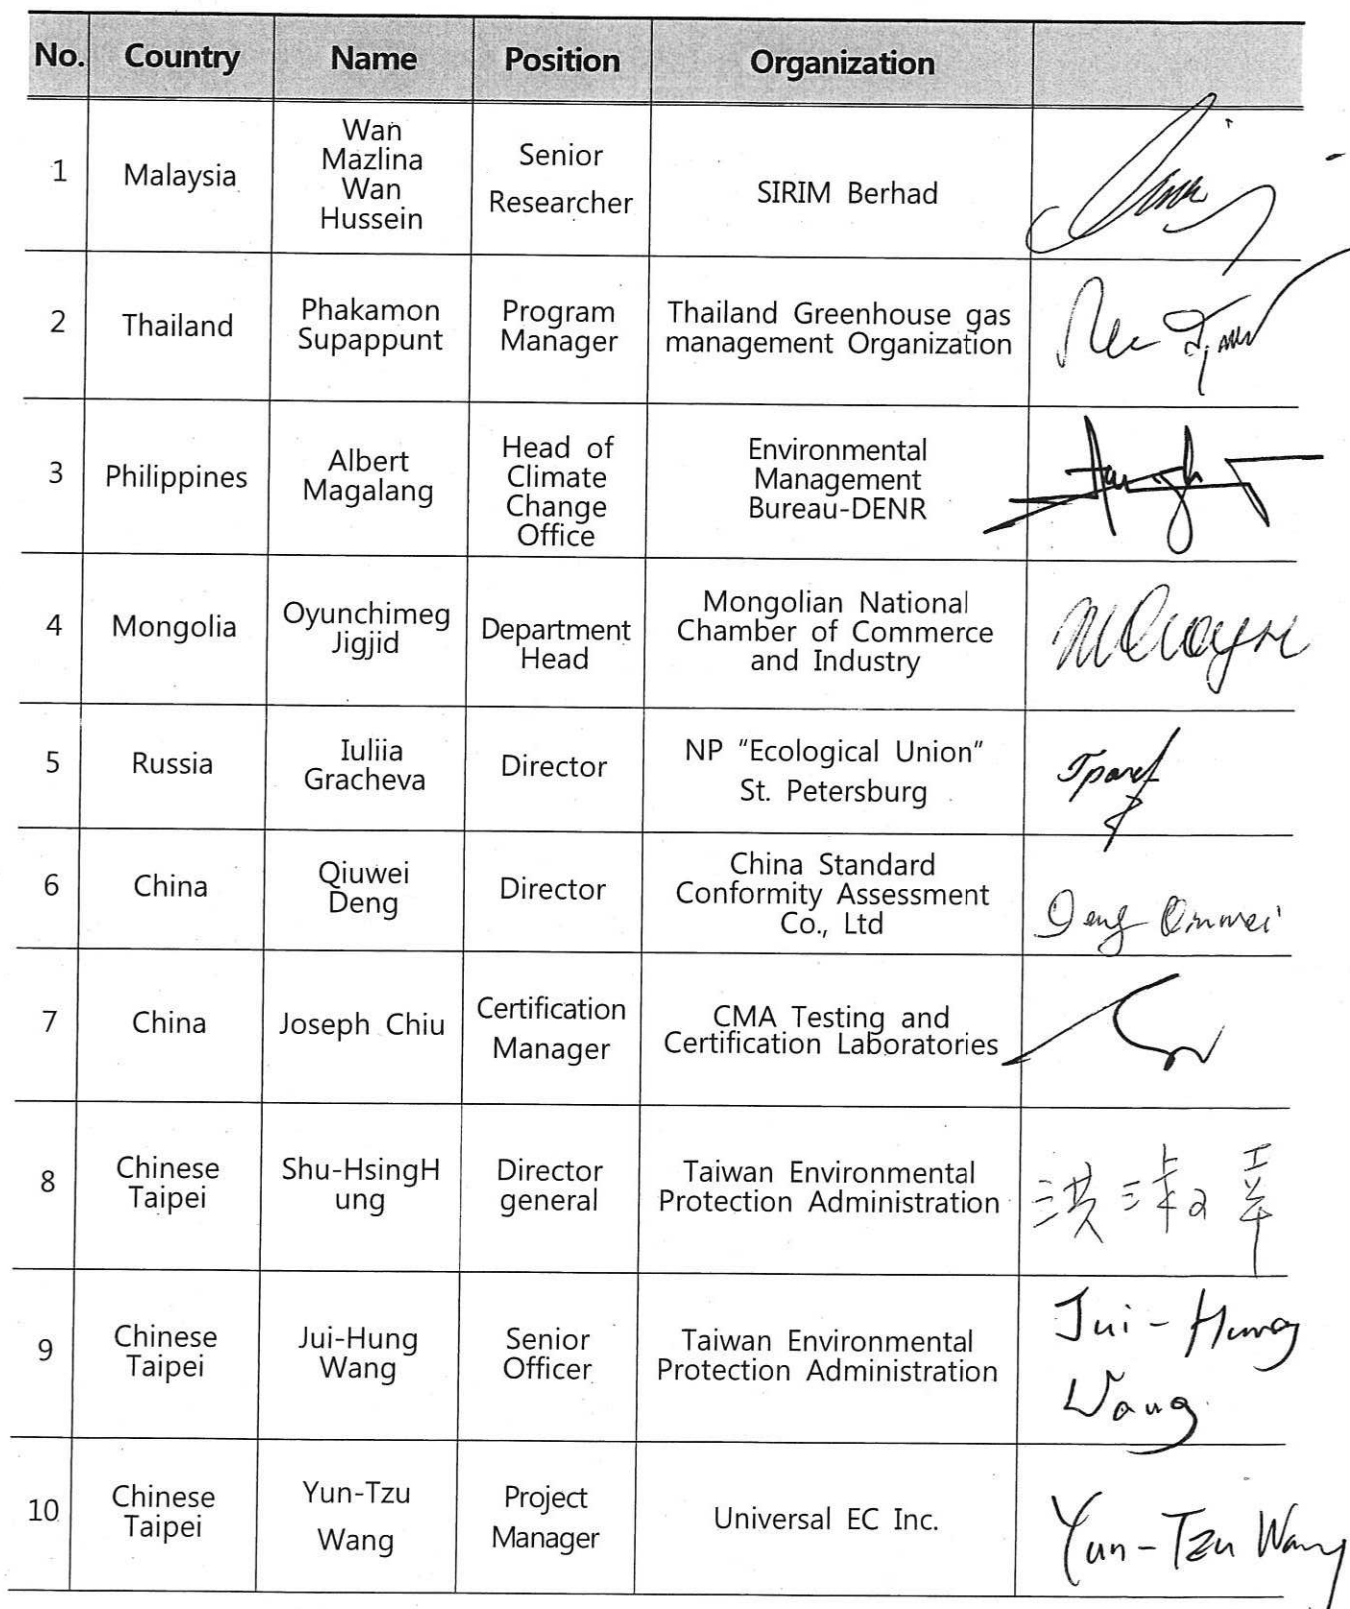 No. Country Name Position Organization
1 Malaysia Wan Mazlina Wan Hussein Senior Researcher SIRIM Berhad
2 Thailand Phakamon Supappunt Program Manager Thailand Greenhouse gas management Organization
3 Philippines Albert Magalang Head of Climate Change Office Environmental Management Bureau-DENR
4 Mongolia Oyunchimeg Jigjid Department Head Mongolian National Chamber of Commerce and Industry
5 Russia Iuliia Gracheva Director NP "Ecological Union" St. Petersburg
6 China Qiuwei Deng Director China Standard Conformity Assessment Co., Ltd Deng
7 China Joseph Chiu Certification Manager CMA Testing and Certification Laboratories
8 Chinese Taipei Shu-HsingH ung Director general Taiwan Environmental Protection Administration
9 Chinese Taipei Jui-Hung Wang Senior Officer Taiwan Environmental Protection Administration Jui-Hung Wang
10 Chinese Taipei Yun-Tzu Wang Project Manager Universal EC Inc. Yun-Tzu Wang